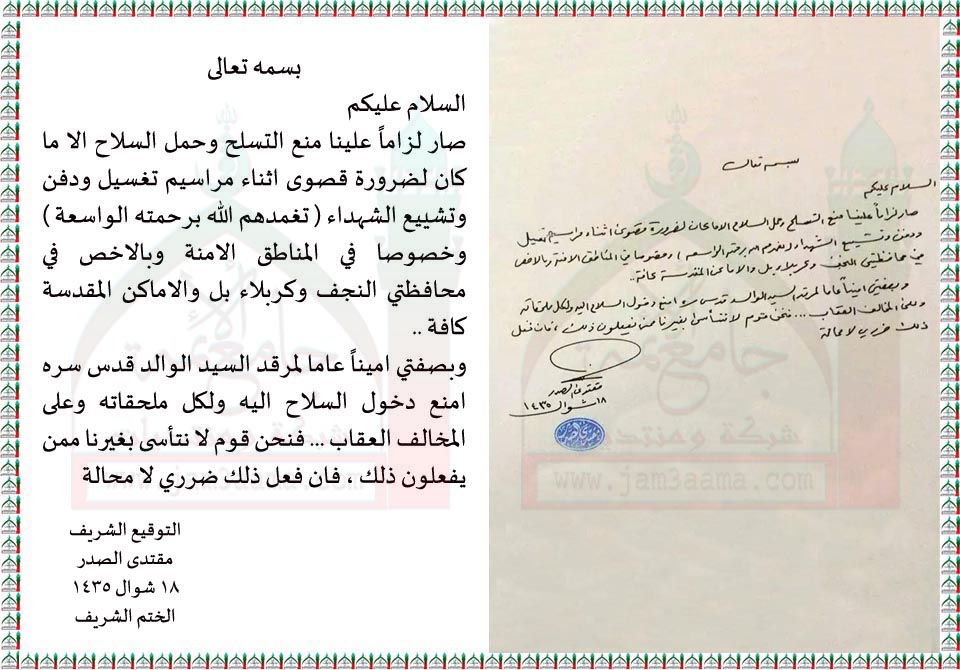 بسمه تعالى
السلام عليكم
صار لزاماً علينا منع التسلح وحمل السلاح الا ما
كان لضرورة قصوى اثناء مراسيم تغسيل ودفن
وتشييع الشهداء ( تغمدهم الله برحمته الواسعة )
وخصوصاً في المناطق الامنة وبالاخص في
محافظتي النجف وكربلاء بل والاماكن المقدسة
كافة ..
وبصفتي اميناً عاما لمرقد السيد الوالد قدس سره
امنع دخول السلاح اليه ولكل ملحقاته وعلى
المخالف العقاب ... فنحن قوم لا نتأسى بغيرنا ممن
يفعلون ذلك ، فان فعل ذلك ضرري لا محالة
التوقيع الشريف
مقتدى الصدر
١٨ شوال ١٤٣٥
الختم الشريف
بسمه تعالى
السلام عليكم
صار لزاماً علينا منع التسلح وحمل السلاح الا ما كان لضرورة قصوى اثناء مراسيم تغسيل
ودفن وتشييع الشهداء ( تغمدهم الله برحمته الواسعة ) وخصوصا في المناطق الامنة وبالاخص
في محافظتي النجف وكربلاء بل والاماكن المقدسة كافة ..
وبصفتي اميناً عاما لمرقد السيد الوالد قدس سره امنع دخول السلاح اليه ولكل ملحقاته
وعلى المخالف العقاب ... فنحن قوم لا نتأسى بغيرنا ممن يفعلون ذلك ، فان فعل
ذلك ضرري لا محالة
مقتدى الصدر
١٨ شوال ١٤٣٥
جامعمة
شركة ومنتد
www.jam3aama.com